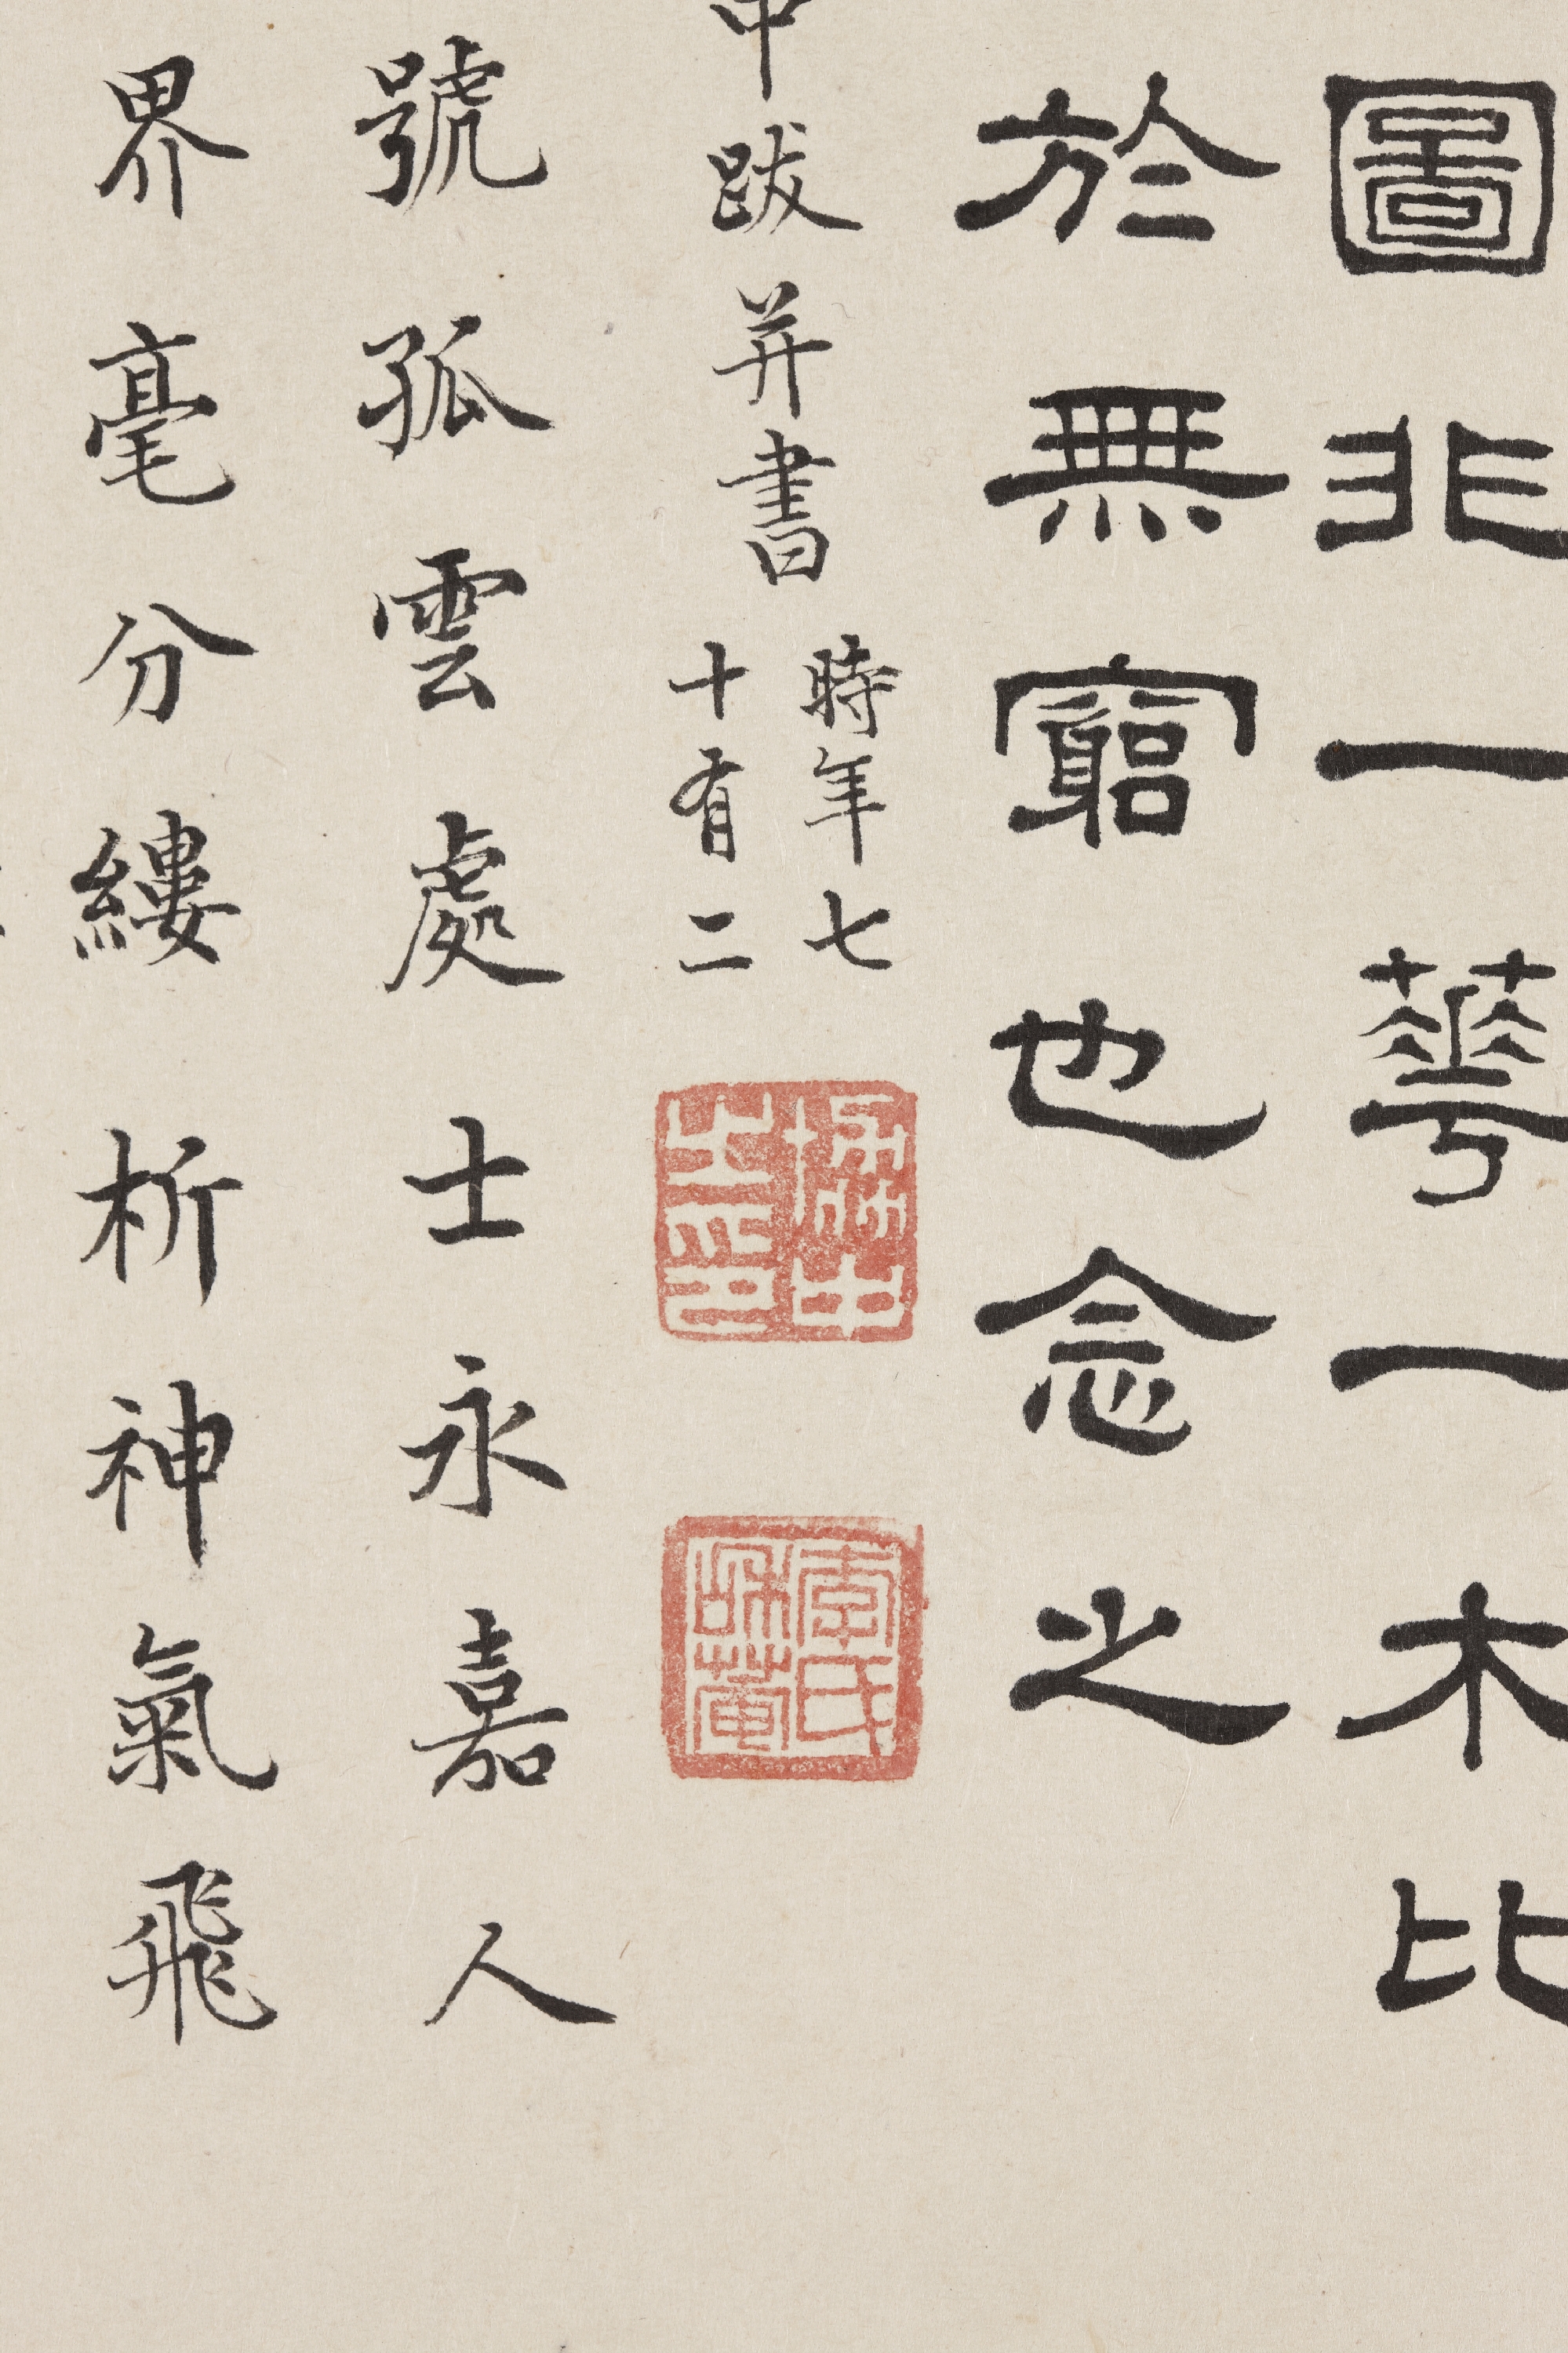 圖非一華一木比
於無窮也念之
中跋并書
時年七
十有二
協中之印
李氏龢菴
號孤雲處士永嘉人
界毫分縷析神氣飛